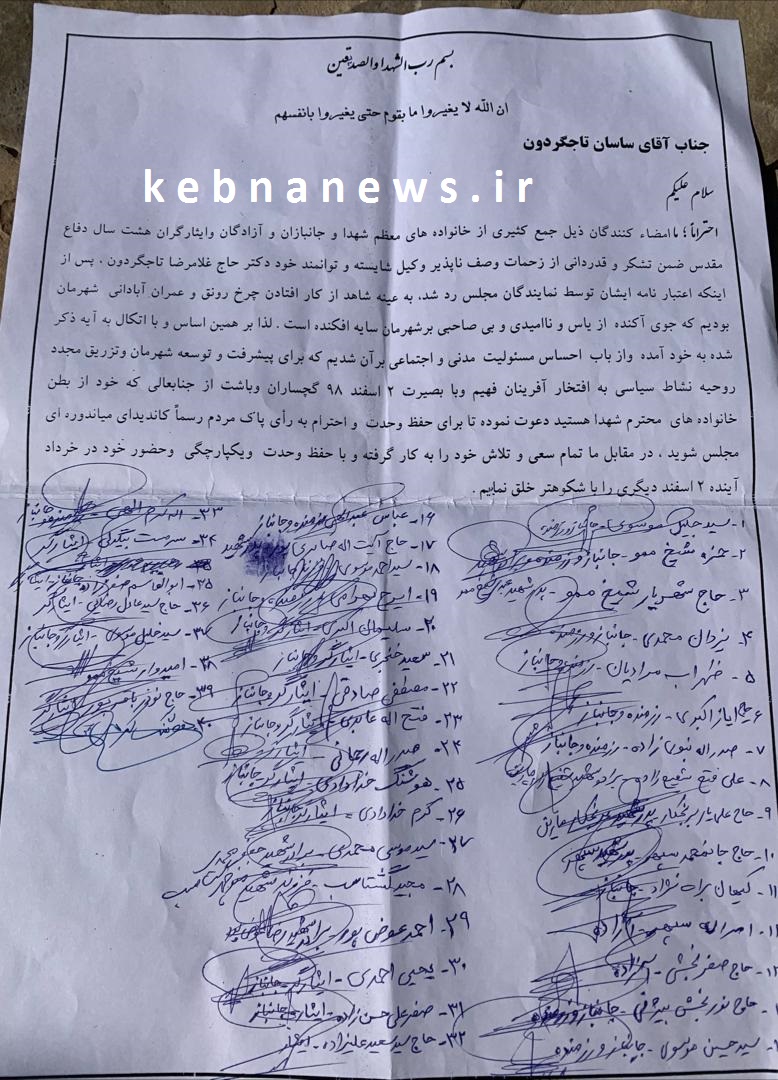 بسم رب الشهدا والصدیقین
ان الله لا یغیروا ما بقوم حتی یغیروا بانفسهم
جناب آقای ساسان تاجگردون
kebnanews.ir
سلام علیکم
احتراماً؛ ما امضاء کنندگان ذیل جمع کثیری از خانواده های معظم شهدا و جانبازان و آزادگان وایثارگران هشت سال دفاع
مقدس ضمن تشکر و قدردانی از زحمات وصف ناپذیر وکیل شایسته و توانمند خود دکتر حاج غلامرضا تاجگردون ، پس از
اینکه اعتبار نامه ایشان توسط نمایندگان مجلس رد شد، به عینه شاهد از کار افتادن چرخ رونق و عمران آبادانی شهرمان
بودیم که جوی آکنده از یاس و ناامیدی و بی صاحبی برشهرمان سایه افکنده است . لذا بر همین اساس و با اتکال به آیه ذکر
شده به خود آمده واز باب احساس مسئولیت مدنی و اجتماعی برآن شدیم که برای پیشرفت و توسعه شهرمان وتزریق مجدد
روحیه نشاط سیاسی به افتخار آفرینان فهیم وبا بصیرت ۲ اسفند ۹۸ گچساران وباشت از جنابعالی که خود از بطن
خانواده های محترم شهدا هستید دعوت نموده تا برای حفظ وحدت و احترام به رأی پاک مردم رسماً کاندیدای میاندوره ای
مجلس شوید ، در مقابل ما تمام سعی و تلاش خود را به کار گرفته و با حفظ وحدت ویکپارچگی وحضور خود در خرداد
آینده ۲ اسفند دیگری را با شکوهتر خلق نمایم .
۱- سید جلیل موسوی - جانباز و رزمنده
۲- حمزه شیخ ممو - جانباز و رزمنده
۳- حاج شهریار شیخ ممو - پدر شهید
۴- یزدان محمدی - جانباز و رزمنده
۵- ظهراب مرادیان - رزمنده و جانباز
۶- حاج ایاز اکبری - رزمنده و جانباز
۷- صدراله نبوی زاده - رزمنده و جانباز
۸- علی فتح شفیع زاده - برادر شهید
۹- حاج علی یار
۱۰- حاج جانمحمد سپهر - پدر شهید سپهر
۱۱- کیهان براه نژاد - جانباز
امراله سپهر - آزاده
حاج صفر بخشی - آزاده
حاج نوربخش - جانباز و رزمنده
سید حسین موسوی - جانباز و رزمنده
۱۶- عباس - رزمنده و جانباز
۱۷- حاج آیت اله صابری
۱۸- سید احمد موسوی - جانباز
۱۹- ایرج - جانباز
۲۰- سلیمان اکبری - ایثارگر و جانباز
۲۱- سعید خنجری - ایثارگر و جانباز
۲۲- مصطفی صادقی - ایثارگر و جانباز
۲۳- فتح اله عابدی - ایثارگر و جانباز
۲۴- صدراله رجائی - ایثارگر
۲۵- هوشنگ خدادادی - ایثارگر جانباز
۲۶- کرم خدادادی - ایثارگر جانباز
۲۷- سید موسی محمدی - برادر شهید
۲۸- مجید گشتاسب - فرزند شهید
۲۹- احمد عوض پور - برادر شهید
۳۰- یحیی احمدی - ایثارگر - جانباز
۳۱- صفر علی حسن زاده - ایثارگر جانباز
۳۲- حاج سید سعید علیزاده - ایثارگر
۳۳- اله کرم
۳۴- سرمست بیگدلی - ایثارگر
۳۵- ابوالقاسم صفرزاده
۳۶- حاج سید عادل رضائی - ایثارگر
۳۷- سید خلیل موسوی - ایثارگر و جانباز
۳۸- امیدوار شیخ ممو
۳۹- حاج نوذر ناصرپور - ایثارگر
۴۰-